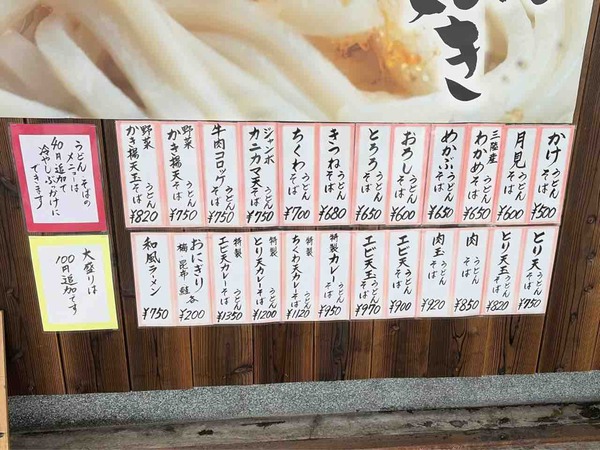 き
かけ うどん そば ¥500
月見 うどん そば ¥600
三陸産 わかめ うどん そば ¥650
めかぶ うどん そば ¥650
おろし うどん そば ¥600
とろろ うどん そば ¥650
きつね うどん そば ¥680
ちくわ うどん そば ¥700
ジャンボ カニカマ天 うどん そば ¥750
牛肉コロッケ うどん そば ¥750
野菜 かき揚天 うどん そば ¥750
野菜 かき揚天玉 うどん そば ¥820
とり天 うどん そば ¥750
とり天玉 うどん そば ¥820
肉 うどん そば ¥850
肉玉 うどん そば ¥920
エビ天 うどん そば ¥900
エビ天玉 うどん そば ¥970
特製 カレー うどん そば ¥950
特製 ちくわ天カレー うどん そば ¥1120
特製 とり天カレー うどん そば ¥1200
特製 エビ天カレー うどん そば ¥1350
おにぎり 梅 昆布 鮭 各 ¥200
和風ラーメン ¥750
うどん そばの
メニューは
40円追加で
冷やしぶっかけに
できます
大盛りは
100円追加です